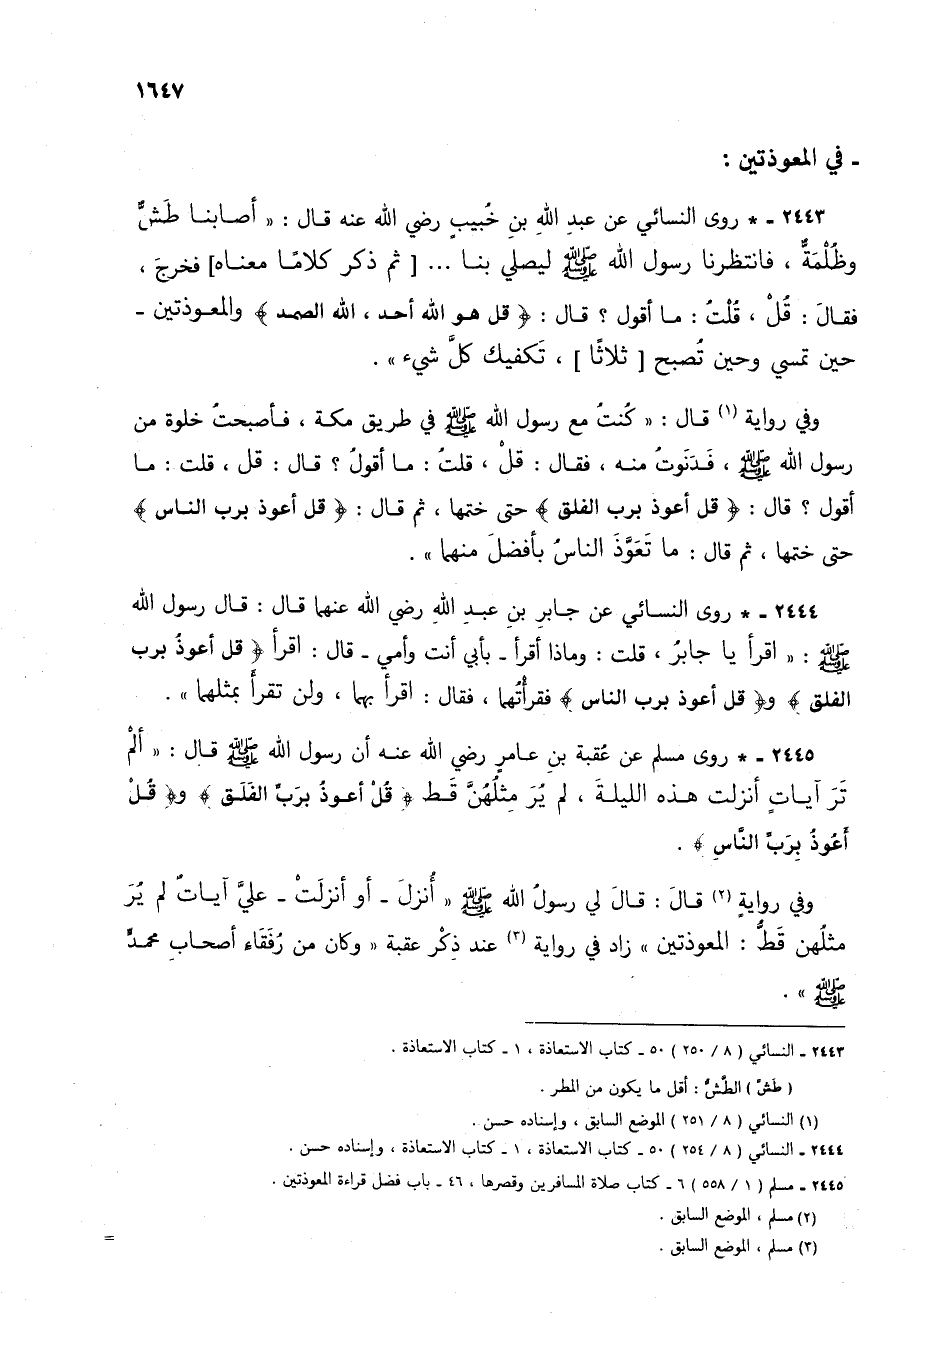 ١٦٤٧
ـ في المعوذتين :
٢٤٤٣ ـ * روى النسائي عن عبدِ الله بنِ خُبيبٍ رضي الله عنه قال : « أصابنا طَشٌّ
وظُلْمَةٌ ، فانتظرنا رسول الله ﷺ ليصلي بنا ... [ ثم ذكر كلامًا معناه] فخرجَ ،
فقالَ : قُلْ ، قُلْتُ : ما أقول ؟ قال : ﴿ قل هو الله أحد ، الله الصمد ﴾ والمعوذتين ـ
حين تمسي وحين تُصبح [ ثلاثًا ] ، تَكفيك كلَّ شيء » .
وفي رواية (١) قال : « كُنتُ مع رسول الله ﷺ في طريق مكة ، فأصبحتُ خلوة من
رسول الله ﷺ ، فَدَنَوتُ منه ، فقال : قلْ ، قلتُ : ما أقولُ ؟ قال : قل ، قلت : ما
أقول ؟ قال : ﴿ قل أعوذ برب الفلق ﴾ حتى ختمها ، ثم قال : ﴿ قل أعوذ برب الناس ﴾
حتى ختمها ، ثم قال : ما تَعَوَّذَ الناسُ بأفضلَ منهما » .
٢٤٤٤ ـ * روى النسائي عن جابرِ بنِ عبدِ اللهِ رضي الله عنهما قال : قال رسول الله
ﷺ : « اقرأ يا جابرُ ، قلت : وماذا أقرأ ـ بأبي أنت وأمي ـ قال : اقرأ ﴿ قل أعوذُ برب
الفلق ﴾ و﴿ قل أعوذ برب الناس ﴾ فقرأْتُهما ، فقال : اقرأ بهما ، ولن تقرأَ بمثلهما » .
٢٤٤٥ ـ * روى مسلم عن عُقبة بنِ عامرٍ رضي الله عنه أن رسول الله ﷺ قال : « ألمْ
تَرَ آياتٍ أنزلت هذه الليلةَ ، لم يُرَ مِثلُهُنَّ قَط ﴿ قُلْ أعوذُ برَبِّ الفَلَقِ ﴾ و﴿ قُلْ
أَعُوذُ بِرَبِّ النَّاسِ ﴾ .
وفي روايةٍ (٢) قالَ : قالَ لي رسولُ الله ﷺ « أُنزلَ ـ أو أنزلَتْ ـ عليَّ آياتٌ لم يُرَ
مثلُهن قَطُّ : المعوذتين » زاد في رواية (٣) عند ذِكْرِ عقبة « وكان من رُفَقَاء أصحابِ محمدٍ
ﷺ » .
٢٤٤٣ ـ النسائي ( ٨ / ٢٥٠ ) ٥٠ ـ كتاب الاستعاذة ، ١ ـ كتاب الاستعاذة .
( طَشٌ ) الطَّشُّ : أقل ما يكون من المطر .
(١) النسائي ( ٨ / ٢٥١ ) الموضع السابق ، وإسناده حسن .
٢٤٤٤ ـ النسائي ( ٨ / ٢٥٤ ) ٥٠ ـ كتاب الاستعاذة ، ١ ـ كتاب الاستعاذة ، وإسناده حسن .
٢٤٤٥ ـ مسلم ( ١ / ٥٥٨ ) ٦ ـ كتاب صلاة المسافرين وقصرها ، ٤٦ ـ باب فضل قراءة المعوذتين .
(٢) مسلم ، الموضع السابق .
(٣) مسلم ، الموضع السابق .
=